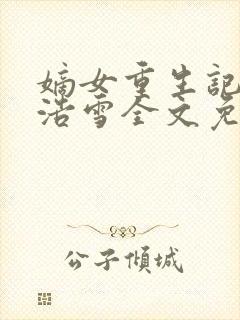 嫡女重生記
浩雪全文免
公子傾城